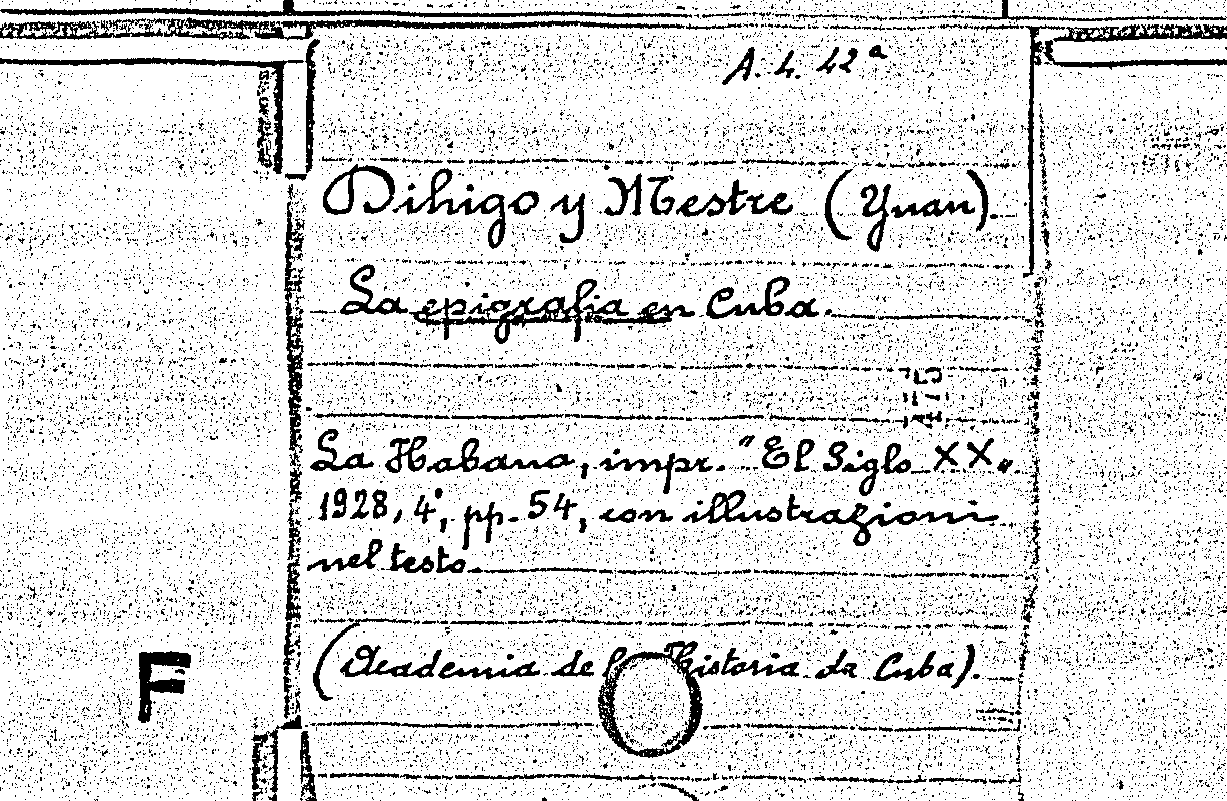 A. 4. 42ª
Dihigo y Mestre (Yuan).
La epigrafia en Cuba.
La Habana, impr. "El Siglo XX„
1928, 4°, pp. 54, con illustrazioni
nel testo.
(Academia de la Historia de Cuba).
F